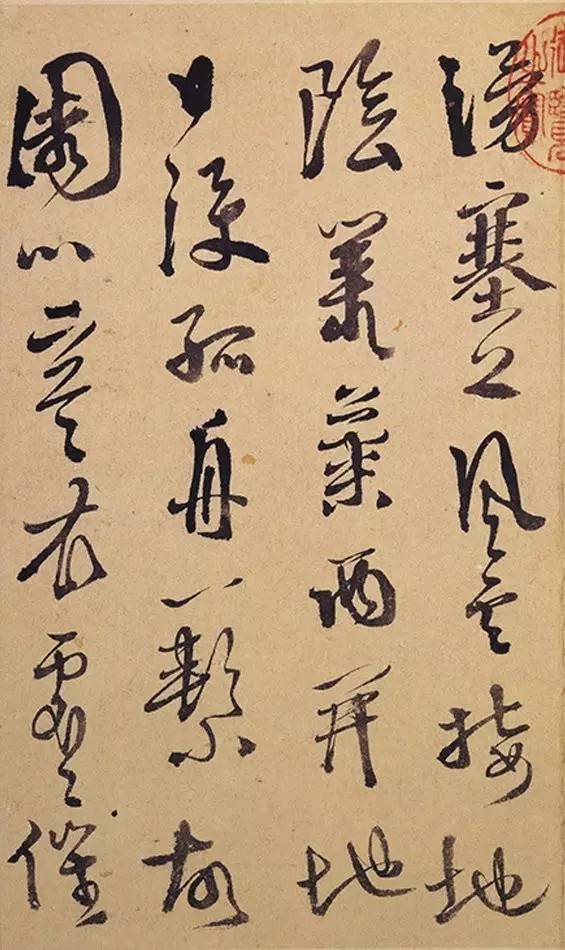 湧塞上風雲接地
陰叢菊兩開地
日淚孤舟一繫故
園心寒衣處〻催